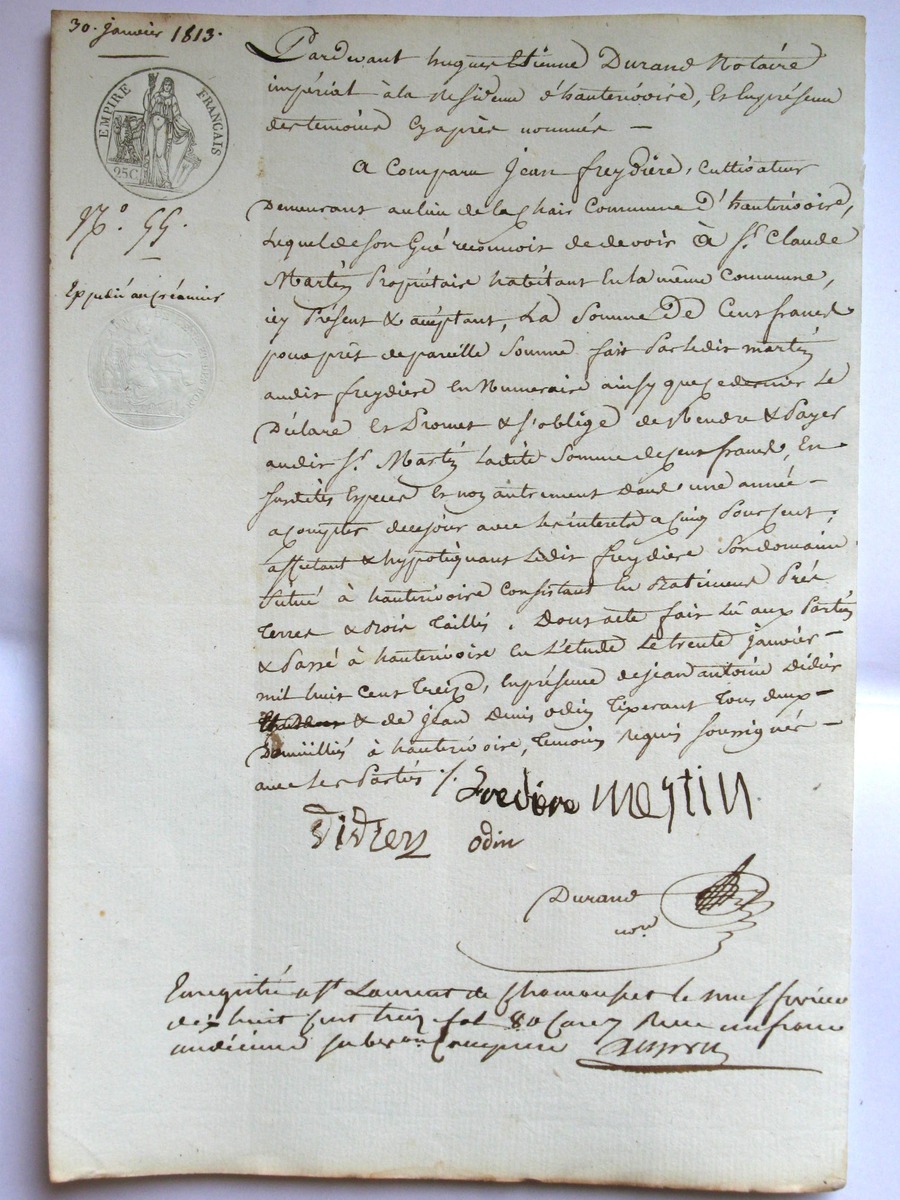 30. janvier 1813.
EMPIRE FRANÇAIS
25C
N.° 55.
Expédié au créancier
Pardevant hugues Etienne Durand Notaire
impérial à la Residence d'hauterivoire, et En présence
des temoins Cy après nommés —
a Comparu Jean freydiere, Cultivateur
Demeurant au lieu de la Chais Commune D'hauterivoire,
Lequel de son Gué reconnoit de devoir à S.r Claude
Martin Propriétaire habitant En la même Commune,
icy Présent & acceptant, La Somme De Cent francs
pour prêt de pareille Somme fait Par ledit martin
audit freydiere En Numeraire ainsy que ce dernier Le
Déclare Et Promet & s'oblige de Rendre & Payer
audit S.r Martin Ladite Somme de Cent francs, En
susdites Especes Et non autrement Dans une année —
a Compter de ce jour avec les interets a Cinq Pour Cent;
affectant & hypotéquant Ledit freydiere Son domaine
Situé à hauterivoire Consistant En Batiments Prés
Terres & Bois Taillis. Dont acte fait Lû aux Parties
& Passé à hauterivoire En L'étude Le trente janvier —
mil huit Cent Treize, En présence de jean antoine Didier
& de jean Denis odin Tixerant Tous deux —
Domiciliés à hauterivoire, Temoins requis Soussignés —
avec Les Parties ./.
fredière Mertin
didier odin
Durand
not.re
Enregistré a S.t Laurent de Chamousset le neuf fevrier
dix huit Cent treize fol. 80 Reçu un franc
subvon Comprise